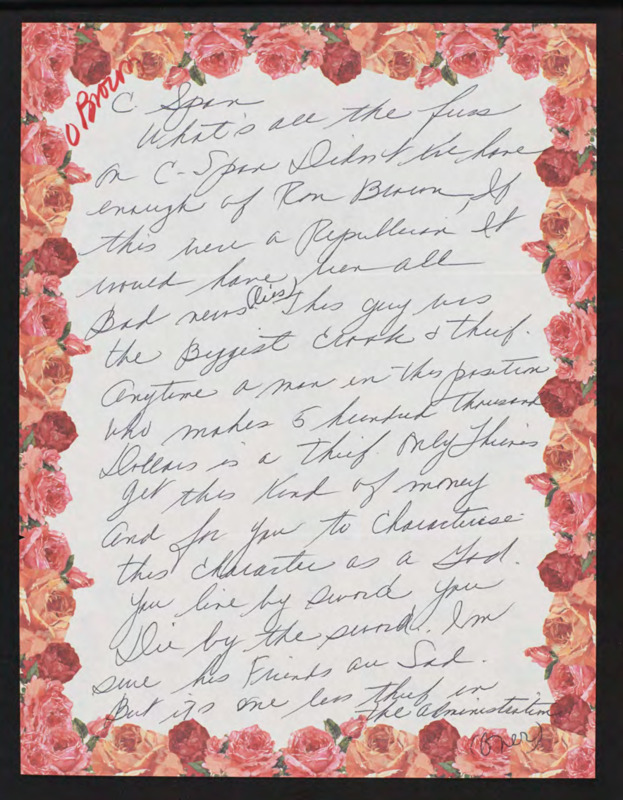 O Brown
C. Span
What's all the fuss
on C-Span Didn't we have
enough of Ron Brown, If
this were a Republican It
would have been all
Bad news (lies) This guy was
the Biggest Crook & thief.
Anytime a man in this position
who makes 5 hundred thousand
Dollars is a thief. Only Thieves
get this kind of money
And for you to Characterise
this Character as a God.
You live by sword you
Die by the sword. Im
sure his Friends are Sad.
But its one less thief in
the administration
(over)